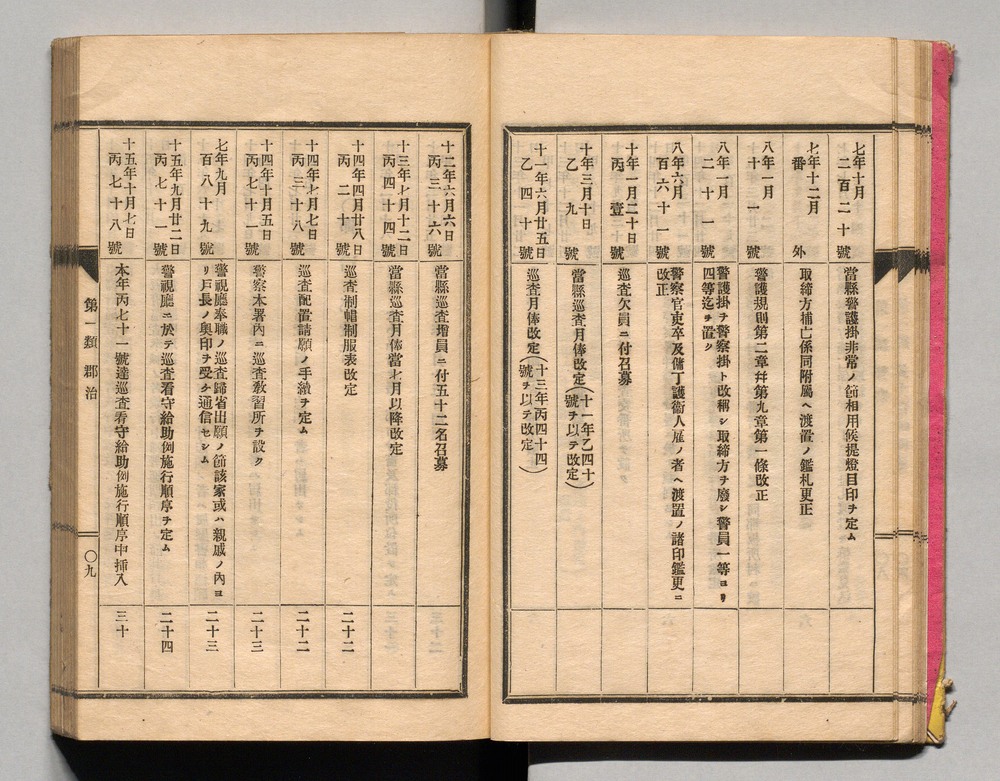 七年十月
二百二十號
當縣警護掛非常ノ節相用候提燈目印ヲ定ム
七年十二月
番外
取締方捕亡係同附屬ヘ渡置ノ鑑札更正
八年一月
十一號
警護規則第二章幷第九章第一條改正
八年一月
二十一號
警護掛ヲ警察掛ト改稱シ取締方ヲ廢シ警員一等ヨリ
四等迄ヲ置ク
八年六月
百六十一號
警察官吏卒及傭丁護衛人雇ノ者ヘ渡置ノ諸印鑑更ニ
改正
十年一月二十日
丙壹號
巡査欠員ニ付召募
十年三月十日
乙九號
當縣巡査月俸改定(十一年乙四十
號ヲ以テ改定)
十一年六月廿五日
乙四十號
巡査月俸改定(十三年丙四十四
號ヲ以テ改定)
十二年六月六日
丙三十六號
當縣巡査增員ニ付五十二名召募
十三年七月十二日
丙四十四號
當縣巡査月俸當七月以降改定
十四年四月廿八日
丙二十號
巡査制帽制服表改定
二十二
十四年七月七日
丙三十八號
巡査配置請願ノ手續ヲ定ム
二十二
十四年十月五日
丙七十一號
警察本署內ニ巡査敎習所ヲ設ク
二十三
七年九月
百八十九號
警視廳奉職ノ巡査歸省出願ノ節該家或ハ親戚ノ內ヨ
リ戶長ノ奧印ヲ受ケ通信セシム
二十三
十五年九月廿二日
丙七十一號
警視廳ニ於テ巡査看守給助例施行順序ヲ定ム
二十四
十五年十月七日
丙七十八號
本年丙七十一號達巡査看守給助例施行順序中挿入
三十
第一類 郡治
〇九